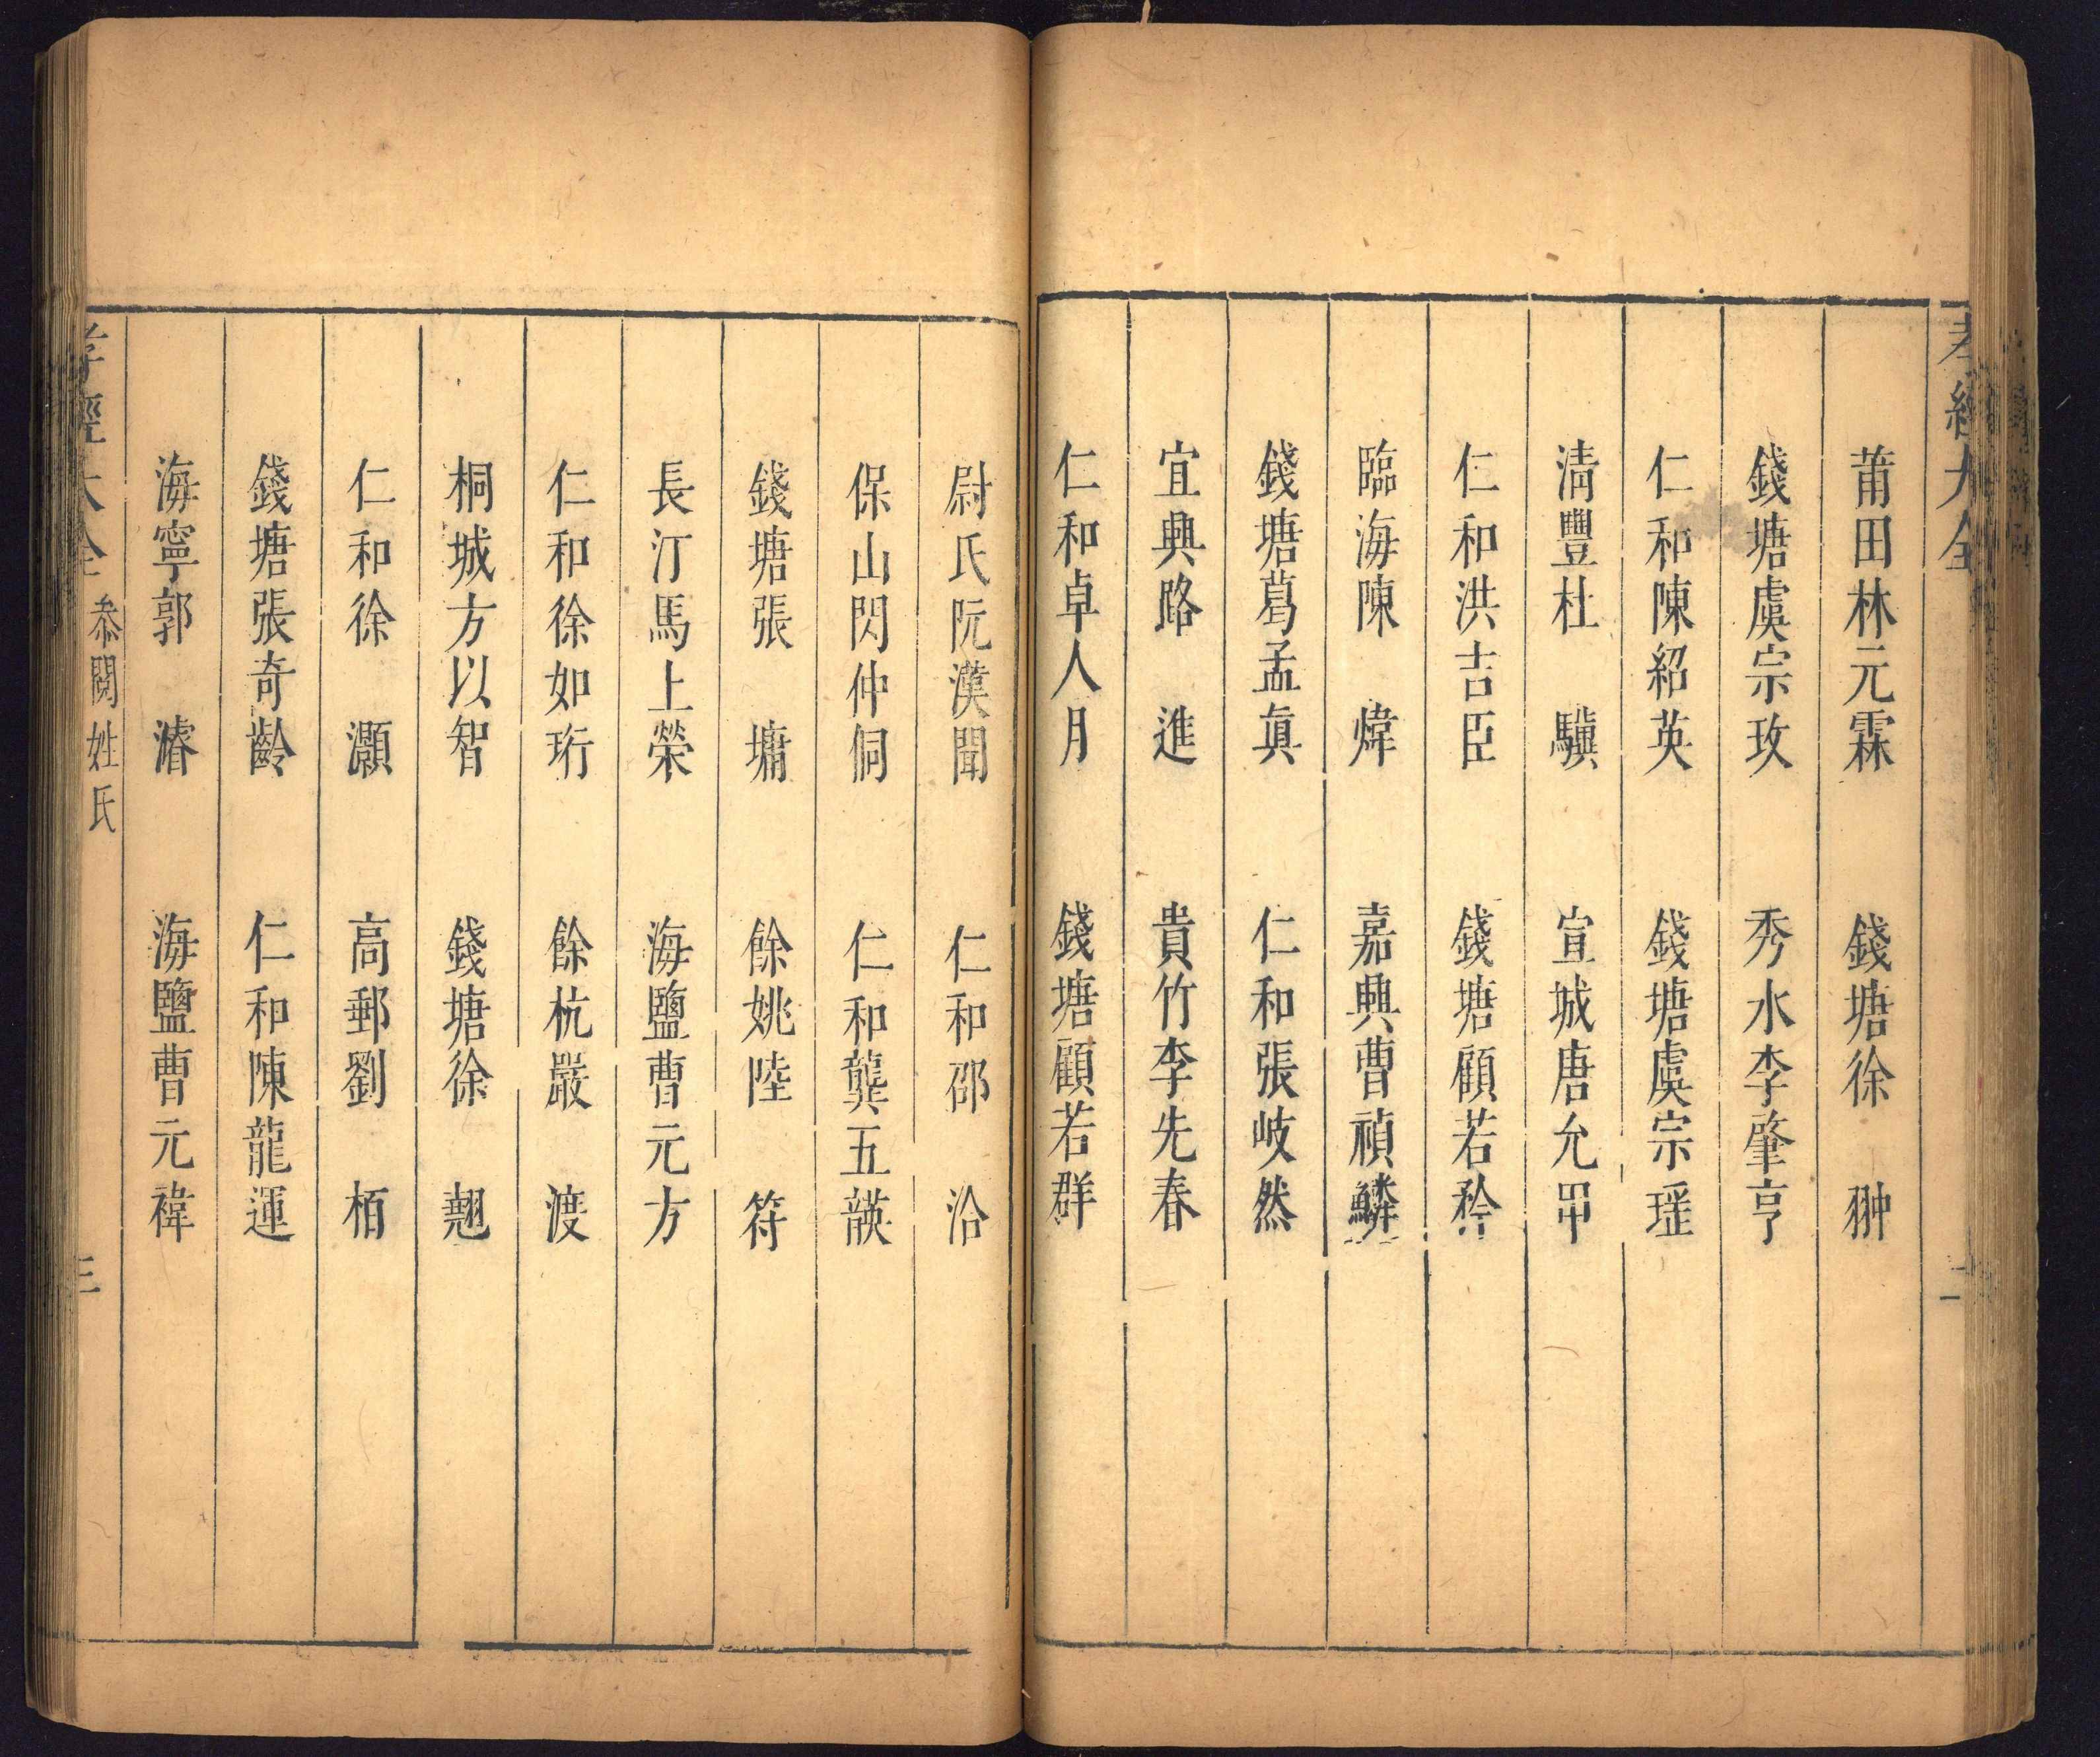 孝經大全
二
莆田林元霖　錢塘徐　翀
錢塘虞宗玫　秀水李肇亨
仁和陳紹英　錢塘虞宗瑶
清豐杜　驥　宣城唐允甲
仁和洪吉臣　錢塘顧若矜
臨海陳　煒　嘉興曹禎鱗
錢塘葛孟眞　仁和張岐然
宜興路　進　貴竹李先春
仁和卓人月　錢塘顧若群
尉氏阮漢聞　仁和邵　洽
保山閃仲侗　仁和龔五韺
錢塘張　墉　餘姚陸　符
長汀馬上榮　海鹽曹元方
仁和徐如珩　餘杭嚴　渡
桐城方以智　錢塘徐　翹
仁和徐　灝　高郵劉　栢
錢塘張奇齡　仁和陳龍運
海寧郭　濬　海鹽曹元褘
孝經大全 叅閱姓氏 三